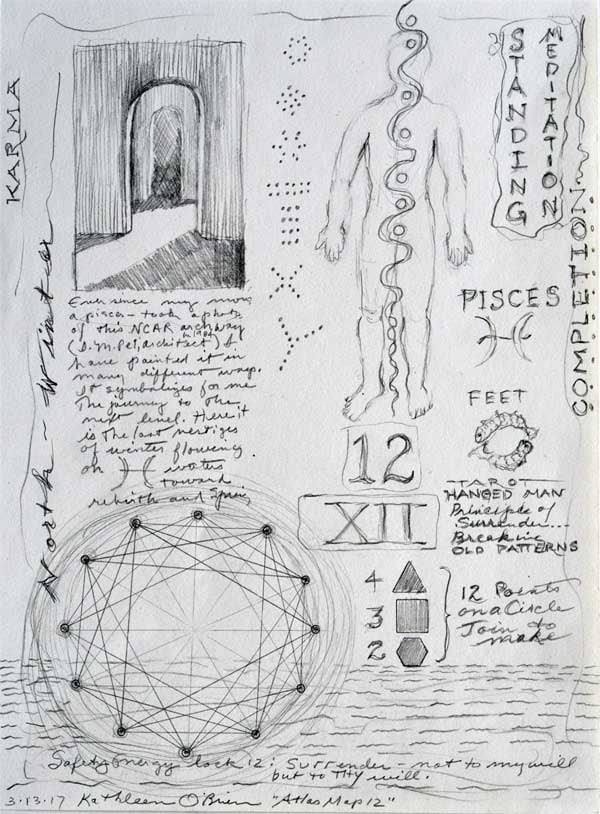 KARMA
North ~ Winter
STANDING
MEDITATION
COMPLETION
PISCES
FEET
12
XII
TAROT
HANGED MAN
Principle of
Surrender...
Breaking
OLD PATTERNS
4
3
2
12 Points
on a Circle
Join to
make
Ever since my move
a pisces - took a photo
of this NCAR archway
(I.M. Pei, architect) I
have painted it in
many different ways.
It symbolizes for me
the journey to the
next level. Here it
is the last vestiges
of winter flowing
on waters
toward
rebirth and Spring
Safety Energy Lock 12: Surrender - not to my will
but to Thy will.
3.13.17 Kathleen O'Brien "Atlas Map 12"